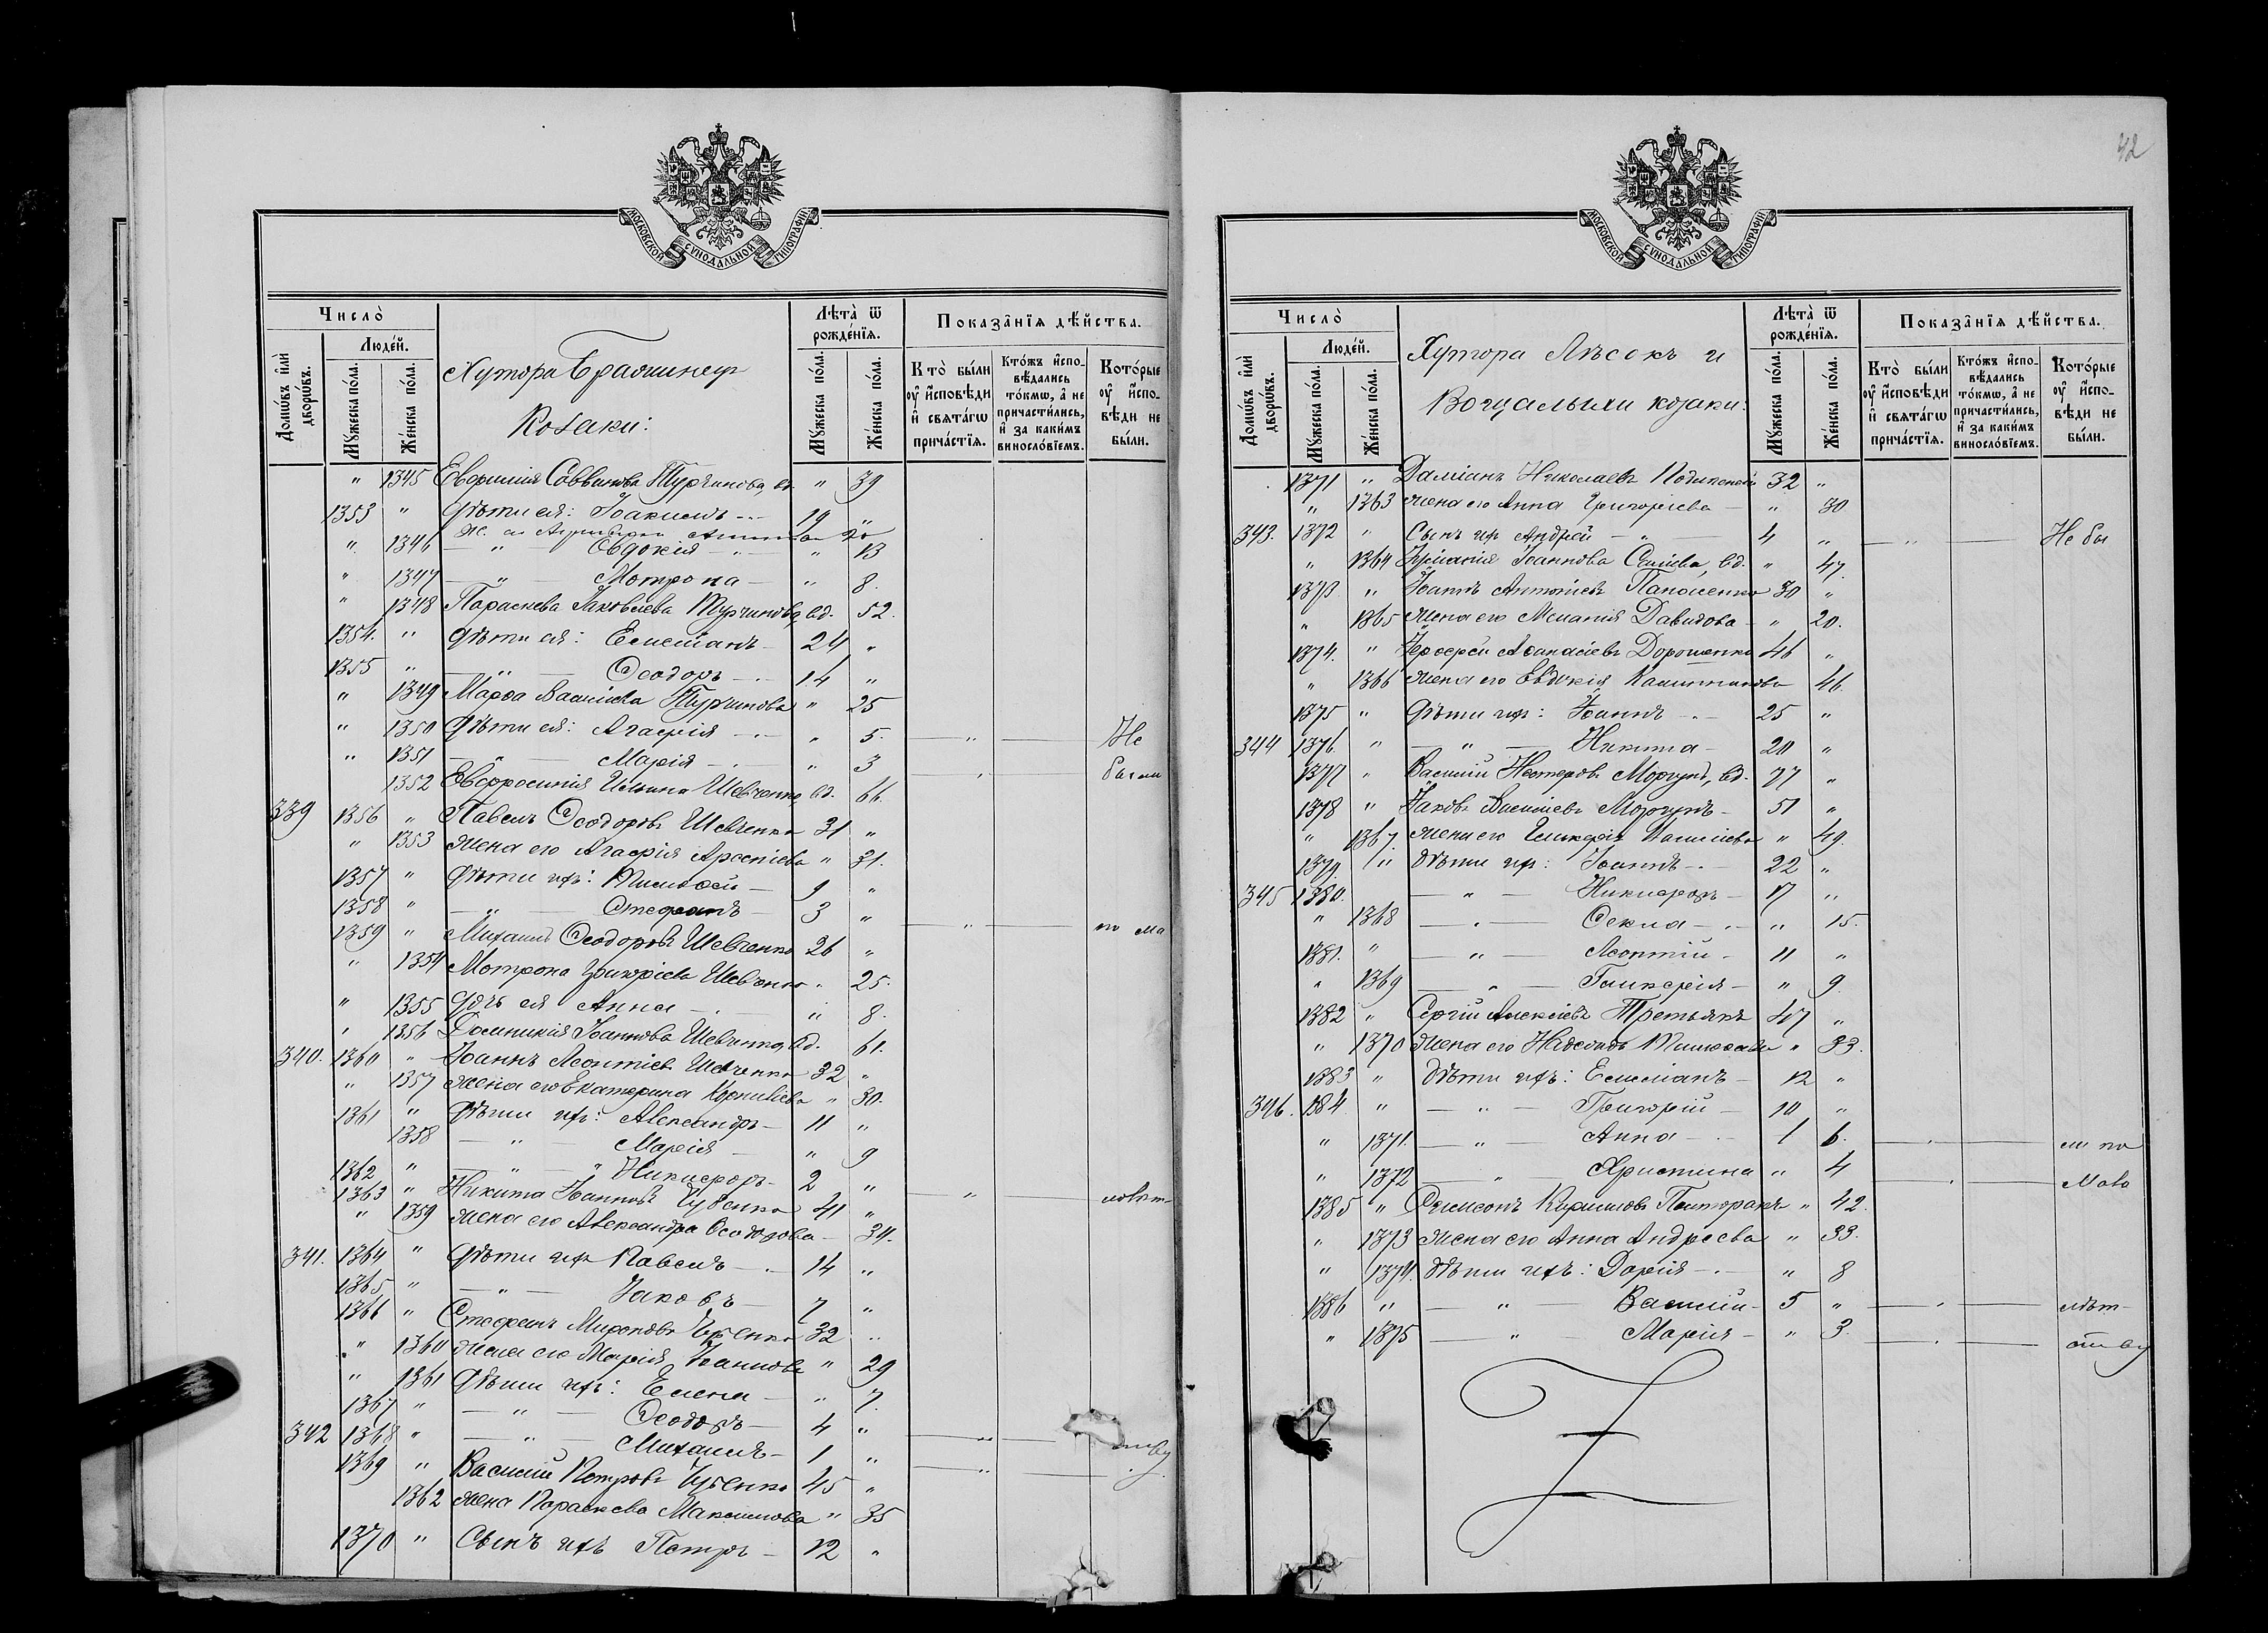 42
МОСКОВСКОЙ СѴНОДАЛЬНОЙ ТИПОГРАФІИ
Число̀
Людéй.
Домѡ́въ и҆лѝ дворѡ́въ.
Мꙋ́жеска по́ла.
Же́нска по́ла.
Хутора
Козаки:
Лѣта̀ ѿ рожде́нїѧ.
Мꙋ́жеска по́ла.
Же́нска по́ла.
Показа̑нїѧ дѣ́йства.
Кто̀ бы́ли оу҆ и҆́сповѣди и҆ свѧта́гѡ прича́стїѧ.
Кто́жъ и҆спо-вѣ́дались то́кмѡ, а҆ не причасти́лись, и҆ за каки́мъ винословїемъ.
Кото́рые оу҆ и҆́спо-вѣди не бы́ли.
" 1345 Саввина Турчинова, вд. " 39
1353 " Дѣти ея: Іоакимъ 19 "
" 1346 — " — Евдокія " 13
" 1347 — " — Мотрона — " 8.
" 1348 Параскева Іаковлева Турчинова, вд. 52.
1354. " Дѣти ея: Емеліанъ — 24 "
1355 " — " — Ѳеодоръ 14 "
" 1349 Марѳа Василіева Турчинова " 25
" 1350 Дѣти ея: Агафія " 5. — " — Не
" 1351 — " — Марія " 3
1352 Евфросинія Ильина Шевченко, вд. 66. " были
339 1356 " Павелъ Ѳеодоровъ Шевченко 31 "
" 1353 Жена его Агафія " 31.
1357 " Дѣти ихъ: Тимоѳей — 9 "
1358 " — " — Стефанъ 3 "
1359 " Михаилъ Ѳеодоровъ Шевченко 26 " — " — по ма
" 1354 Мотрона Григоріева Шевченко " 25.
" 1355 Дочь ея Анна " 8.
" 1356 Домникія Іоаннова Шевченко, вд. 61.
340. 1360 " Іоаннъ Леонтіевъ Шевченко 32 "
" 1357 Жена его Екатерина Корниліева " 30.
1361 " Дѣти ихъ: Александръ — 11 "
1358 — " — Марія " 9
1362 " — " — Никифоръ — 2 "
1363 " Никита Іоанновъ 41 " "
" 1359 Жена его Александра Ѳеодорова — 34.
341. 1364 " Дѣти ихъ Павелъ 14 "
1365 " — " — Іаковъ — 7 "
1366 " Стефанъ Мироновъ 32 "
" 1360 Жена его Марія Іоаннова " 29
" 1361 Дѣти ихъ: Елена — " 7.
1367 " — " — Ѳеодоръ 4 "
342 1368 " — " — Михаилъ — 1 "
1369 " Василій Петровъ 45 "
1362 Жена Параскева Максимова " 35
1370 " Сынъ ихъ Петръ — 12 "
МОСКОВСКОЙ СѴНОДАЛЬНОЙ ТИПОГРАФІИ
Число̀
Людéй.
Домѡ́въ и҆лѝ дворѡ́въ.
Мꙋ́жеска по́ла.
Же́нска по́ла.
Хутора Лѣсокъ и
козаки:
Лѣта̀ ѿ рожде́нїѧ.
Мꙋ́жеска по́ла.
Же́нска по́ла.
Показа̑нїѧ дѣ́йства.
Кто̀ бы́ли оу҆ и҆́сповѣди и҆ свѧта́гѡ прича́стїѧ.
Кто́жъ и҆спо-вѣ́дались то́кмѡ, а҆ не причасти́лись, и҆ за каки́мъ винословїемъ.
Кото́рые оу҆ и҆́спо-вѣди не бы́ли.
1371 " Даміанъ Николаевъ 32 "
" 1363 Жена его Анна Григоріева — " 30
343. 1372 " Сынъ ихъ Андрей — " 4 " — " — Не бы
" 1364 Іоаннова вд. " 47.
1373 " Іоаннъ Антоніевъ 30 "
" 1365 Жена его Меланія Давидова — " 20.
1374. " Аѳанасіевъ Дорошенко 46 "
" 1366 Жена его Евдокія 46.
1375 " Дѣти ихъ: Іоаннъ 25 "
344 1376. " — " — Никита — 20 "
1377 " Василій Несторовъ Моргунъ, вд. 77 "
1378 " Іаковъ Василіевъ Моргунъ — 51 "
" 1367. Жена его Гликерія Василіева " 49.
1379. " Дѣти ихъ: Іоаннъ 22 "
345 1380. — " — Никифоръ — 17 "
" 1368 — " — Ѳекла " 15.
1381. " — " — Леонтій — 11 "
" 1369 — " — Гликерія — " 9
1382 " Сергій Алексіевъ Третьякъ 47 "
" 1370 Жена его " 33.
1383 " Дѣти ихъ: Емеліанъ — 12 "
346. 1384 " — " — Григорій — 10 "
" 1371. — " — Анна 6. — " — ли по
" 1372 — " — Христина " 4 — " — мало
1385 " Кириловъ " 42.
" 1373 Жена его Анна Андреева " 33.
" 1374. Дѣти ихъ: Дарія " 8
1386 " — " — Василій — 5 " — " — лѣт-
" 1375 — " — Марія — " 3 — " — ству